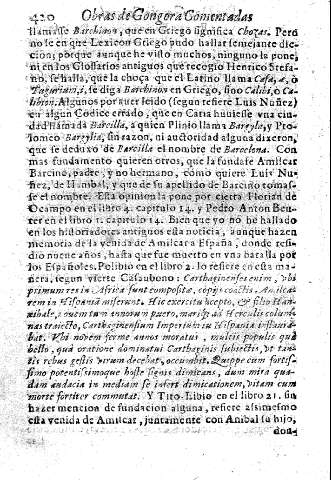 420 Obras de Gongora Comentadas
llamasse Barchinon, que en Griego significa Chozas. Pero
no se en que Lexicon Griego pudo hallar semejante dic-
cion; porque aunque he visto muchos, ninguno la pone, ni
en los Glossarios antiguos que recogio Henrico Stefa-
no, se halla, que la choça que el Latino llama Casa, æ, ò
Tugurium, i, se diga Barchinon en Griego, sino Caliâ, ò Ca-
libion. Algunos por auer leido (segun refiere Luis Nuñez)
en algun Codice errado, que en Caria huuiesse vna ciu-
dad llamada Barcilla, a quien Plinio llama Bargylia, y Pto-
lomeo Bargylia, sin razon, ni autoridad alguna dixeron,
que se deduxo de Barcilla el nombre de Barcelona. Con
mas fundamento quieren otros, que la fundasse Amilcar
Barcino, padre, y no hermano, como quiere Luis Nu-
ñez, de Hanibal, y que de su apellido de Barcino tomas-
se el nombre. Esta opinion la pone por cierta Florian de
Ocampo en el libro 4. capitulo 14. y Pedro Anton Beu-
ter en el libro 1. capitulo 14. Bien que yo no he hallado
en los historiadores antiguos esta noticia, aunque hazen
memoria de la venida de Amilcar a España, donde resi-
dio nueue años, hasta que fue muerto en vna batalla por
los Españoles. Polibio en el libro 2. lo refiere en esta ma-
nera, segun vierte Casaubon: Carthaginenses enim, vbi
primum res in Africa sunt compositæ, copijs coactis, Amilca-
rem in Hispaniã miserunt. Hic exercitu accepto, & filio Han-
nibale, nouem tum annorum puero, mari ad Herculis colum-
nas traiecto, Carthaginensium Imperium in Hispania instaura-
bit. Vbi novem ferme annos moratus, multis populis quà
bello, quà oratione dominatui Carthaginis subiectis, vt tan-
tis rebus gestis virum decebat, occumbit. Quippe cum fortis-
simo potentissimoque hoste signis dimicans, dum mira qua-
dam audacia in mediam se infert dimicationem, vitam cum
morte fortiter commutat. Y Tito Libio en el libro 21. sin
hazer mencion de fundacion alguna, refiere assimesmo
esta venida de Amilcar, juntamente con Anibal su hijo,
don-